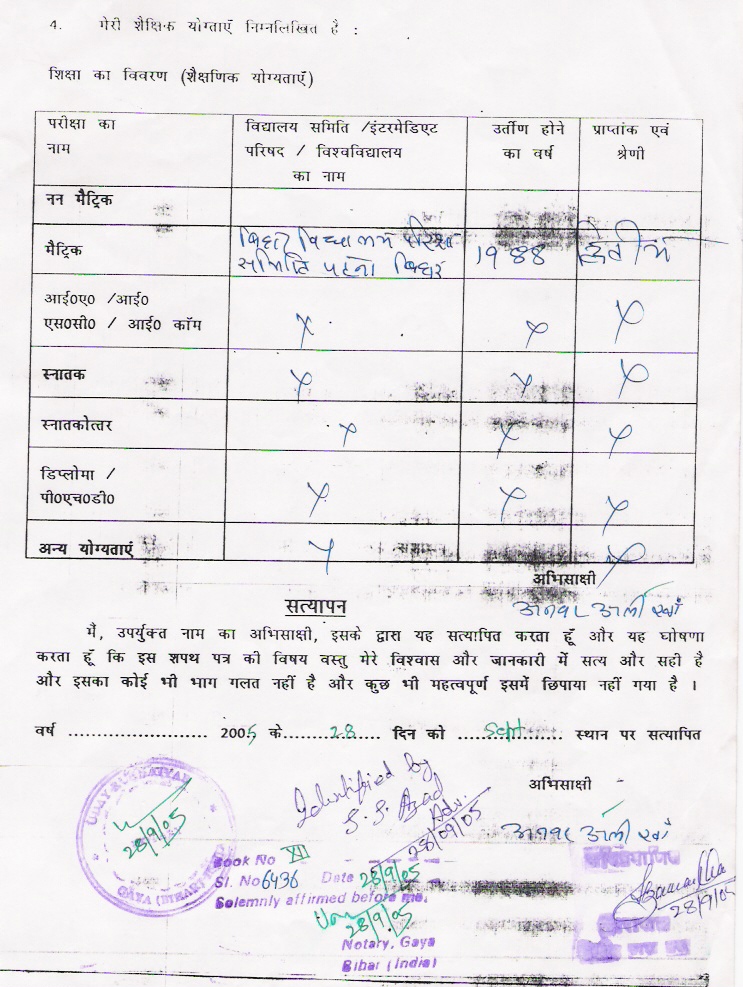 4. मेरी शैक्षिक योग्ताएँ निम्नलिखित है :
शिक्षा का विवरण (शैक्षणिक योग्यताएँ)
परीक्षा का नाम
विद्यालय समिति /इंटरमेडिएट परिषद / विश्वविद्यालय का नाम
उर्तीण होने का वर्ष
प्राप्तांक एवं श्रेणी
नन मैट्रिक
मैट्रिक
बिहार विद्यालय परिक्षा
समिति पटना बिहार
1988
द्वितीय
आई०ए० /आई०
एस०सी० / आई० कॉम
x x x
स्नातक x x x
स्नातकोत्तर x x x
डिप्लोमा /
पी०एच०डी० x x x
अन्य योग्यताएं x x
अभिसाक्षी
अनवर अली खाँ
सत्यापन
मैं, उपर्युक्त नाम का अभिसाक्षी, इसके द्वारा यह सत्यापित करता हूँ और यह घोषणा
करता हूँ कि इस शपथ पत्र की विषय वस्तु मेरे विश्वास और जानकारी में सत्य और सही है
और इसका कोई भी भाग गलत नहीं है और कुछ भी महत्वपूर्ण इसमें छिपाया नहीं गया है ।
वर्ष ........................ 2005 के..........28.......... दिन को ......Sept.......... स्थान पर सत्यापित
अभिसाक्षी
अनवर अली खाँ
Identified by
S. S. Azad
Adv.
28/09/05
28/9/05
GAYA (BIHAR)
Book No XII
Sl. No 6436 Date 28/9/05
Solemnly affirmed before me.
28/9/05
Notary, Gaya
Bihar (India)
28/9/05